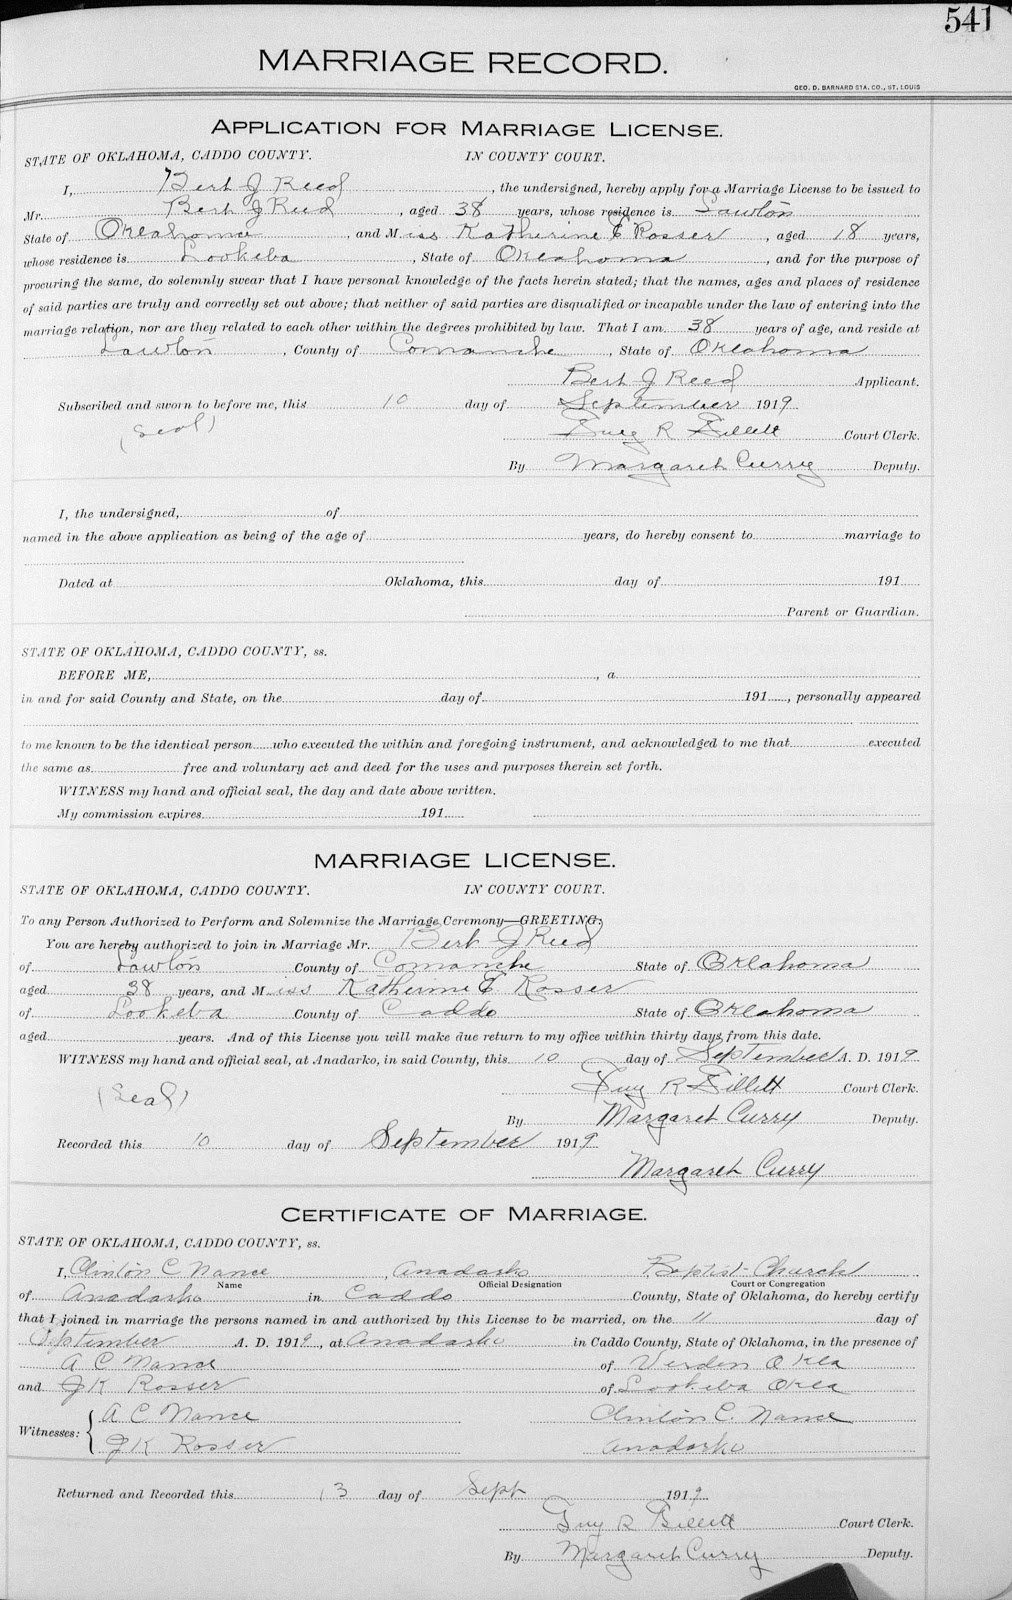 541
MARRIAGE RECORD.
GEO. D. BARNARD STA. CO., ST. LOUIS
APPLICATION FOR MARRIAGE LICENSE.
STATE OF OKLAHOMA, CADDO COUNTY. IN COUNTY COURT.
I, Bert J Reed, the undersigned, hereby apply for a Marriage License to be issued to
Mr. Bert J Reed, aged 38 years, whose residence is Lawton
State of Oklahoma, and Miss Katherine E Rosser, aged 18 years,
whose residence is Lookeba, State of Oklahoma, and for the purpose of
procuring the same, do solemnly swear that I have personal knowledge of the facts herein stated; that the names, ages and places of residence
of said parties are truly and correctly set out above; that neither of said parties are disqualified or incapable under the law of entering into the
marriage relation, nor are they related to each other within the degrees prohibited by law. That I am 38 years of age, and reside at
Lawton, County of Comanche, State of Oklahoma
Bert J Reed Applicant.
Subscribed and sworn to before me, this 10 day of September 1919
(Seal) Guy R Gillett Court Clerk.
By Margaret Curry Deputy.
I, the undersigned, of
named in the above application as being of the age of years, do hereby consent to marriage to
Dated at Oklahoma, this day of 191
Parent or Guardian.
STATE OF OKLAHOMA, CADDO COUNTY, ss.
BEFORE ME, , a
in and for said County and State, on the day of 191 , personally appeared
to me known to be the identical person who executed the within and foregoing instrument, and acknowledged to me that executed
the same as free and voluntary act and deed for the uses and purposes therein set forth.
WITNESS my hand and official seal, the day and date above written.
My commission expires 191
MARRIAGE LICENSE.
STATE OF OKLAHOMA, CADDO COUNTY. IN COUNTY COURT.
To any Person Authorized to Perform and Solemnize the Marriage Ceremony—GREETING:
You are hereby authorized to join in Marriage Mr. Bert J Reed
of Lawton County of Comanche State of Oklahoma
aged 38 years, and Miss Katherine E Rosser
of Lookeba County of Caddo State of Oklahoma
aged years. And of this License you will make due return to my office within thirty days from this date.
WITNESS my hand and official seal, at Anadarko, in said County, this 10 day of September A. D. 1919
(Seal) Guy R Gillett Court Clerk.
By Margaret Curry Deputy.
Recorded this 10 day of September 1919
Margaret Curry
CERTIFICATE OF MARRIAGE.
STATE OF OKLAHOMA, CADDO COUNTY, ss.
I, Clinton C Nance, Anadarko Baptist Church
Name Official Designation Court or Congregation
of Anadarko in Caddo County, State of Oklahoma, do hereby certify
that I joined in marriage the persons named in and authorized by this License to be married, on the 11 day of
September A. D. 1919, at Anadarko in Caddo County, State of Oklahoma, in the presence of
A C Nance of Verden Okla
and J K Rosser of Lookeba Okla
Witnesses: A C Nance Clinton C. Nance
J K Rosser Anadarko
Returned and Recorded this 13 day of Sept 1919
Guy R Gillett Court Clerk.
By Margaret Curry Deputy.